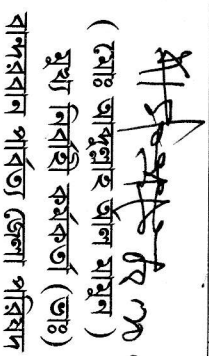 ( মোঃ আব্দুল্লাহ আল মামুন )
মুখ্য নির্বাহী কর্মকর্তা (ভাঃ)
বান্দরবান পার্বত্য জেলা পরিষদ